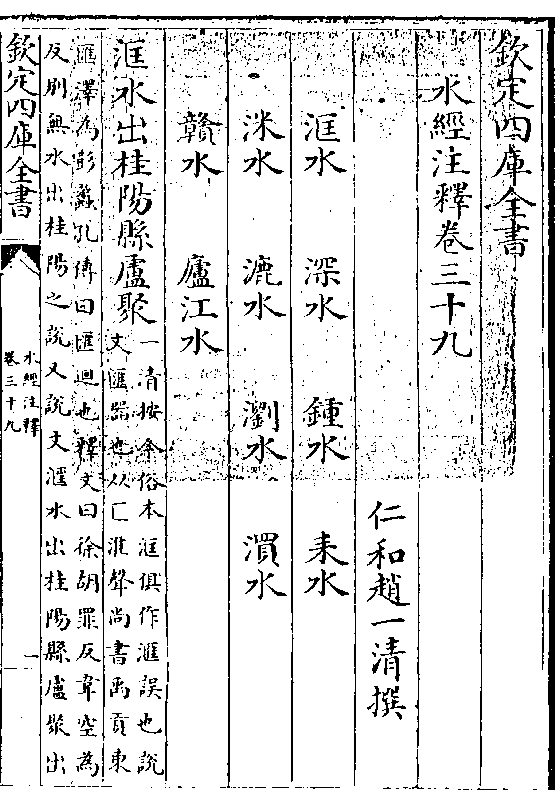 欽定四庫全書
水經注釋卷三十九
仁和趙一清撰
洭水　深水　鍾水　耒水
洣水　漉水　瀏水　㵋水
贛水　廬江水
洭水出桂陽縣盧聚
一清按今俗本洭俱作滙誤也說
文匯器也从匚淮聲尚書禹貢東
匯澤為彭蠡孔傳曰匯迴也釋文曰徐胡罪反韋空為
反則無水出桂陽之說又說文滙水出桂陽縣盧聚出
欽定四庫全書
水經注釋
卷三十九
一